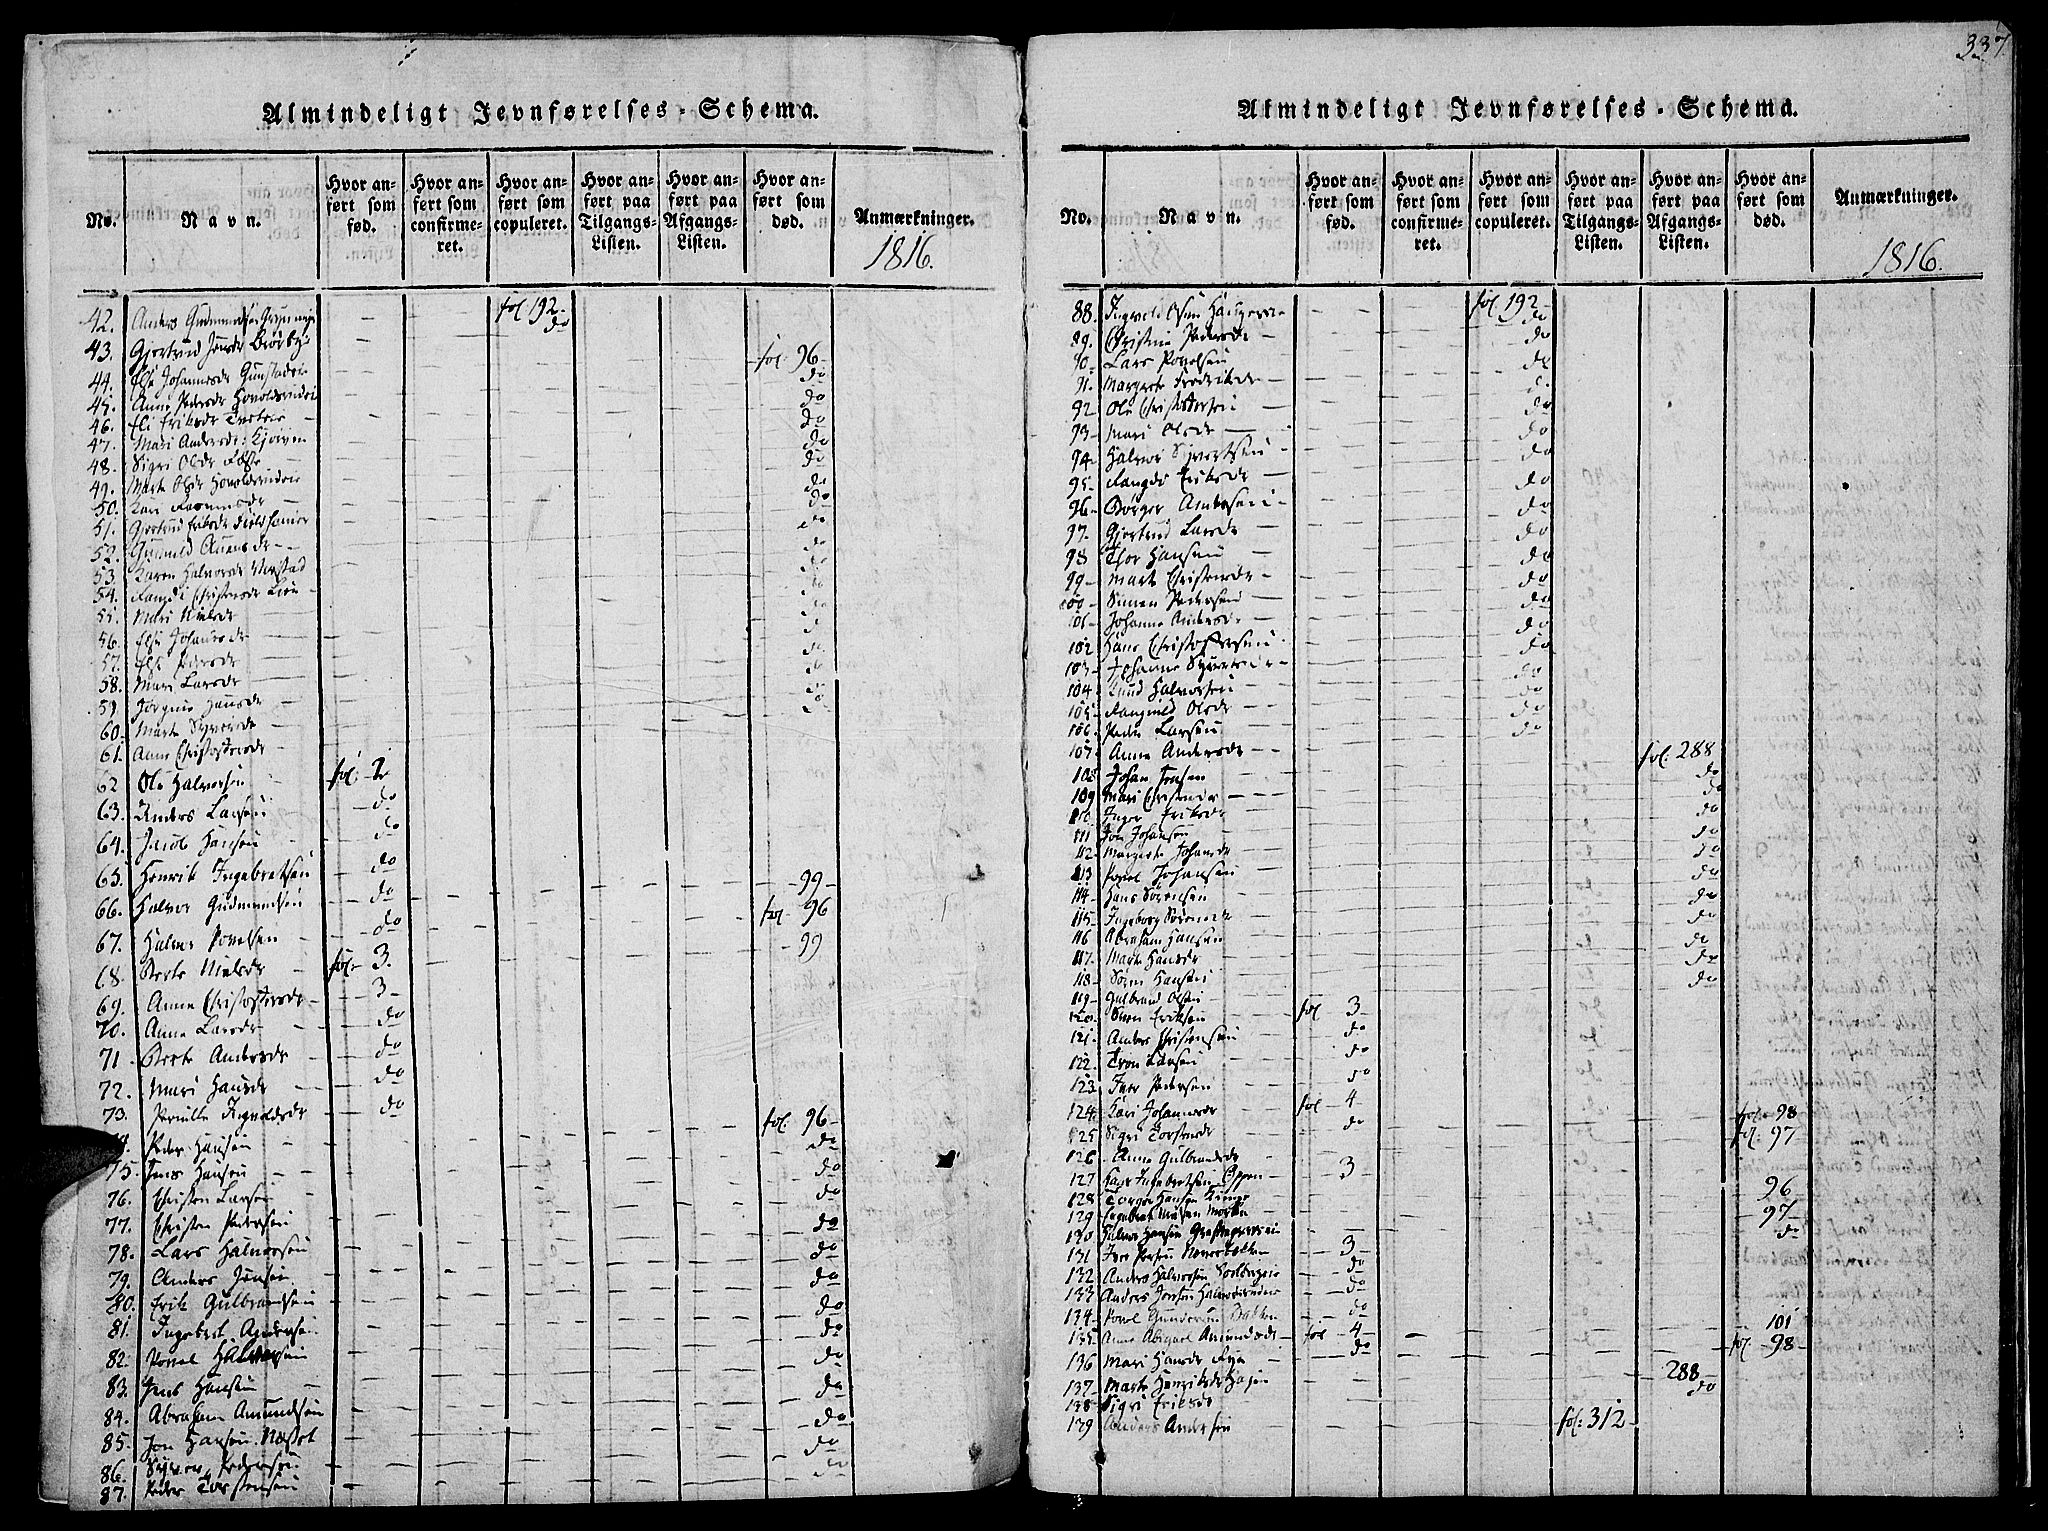 337
Almindeligt Jevnførelses-Schema.
No. Navn. Hvor anført som fød. Hvor anført som confirmeret. Hvor anført som copuleret. Hvor anført paa Tilgangs-Listen. Hvor anført paa Afgangs-Listen. Hvor anført som død. Anmærkninger.
1816.
42. Anders Gudmundsen fol 192
43. Gjertrud Jensdr do
44. Else Johannesdr fol. 96
45. Anne Pedersdr do
46. Eli Eriksdr do
47. Mari Andersdr do
48. Sigri Olsdr do
49. Marte Olsdr do
50. Kari do
51. Gjertrud Eriksdr do
52. Gunild do
53. Karen Halvorsdr do
54. Christensdr do
55. Mari Nielsdr do
56. Else Johansdr do
57. Else Pedersdr do
58. Mari Larsdr do
59. Jørgine Hansdr do
60. Marte Syversdr do
61. Anne Christofersdr
62 Ole Halvorsen fol. 2
63. Anders Larsen do
64. Jacob Hansen do
65. Henrik Ingebretsen do
66. Halvor Gudmundsen do 99
67. Halvor Povelsen do fol. 96
68. Berte Nielsdr fol. 3. 99
69. Anne Christofersdr 3
70. Anne Larsdr do
71 Berte Andersdr do
72. Mari Hansdr do
73. Pernille Ingvoldsdr do
74. Peder Hansen fol. 96
75 Jens Hansen do
76. Christen Larsen do
77. Christen Pedersen do
78. Lars Halvorsen do
79. Anders Jensen do
80. Erik Gulbrandsen do
81. Ingebret Andersen do
82. Povel Halvorsen do
83. Jens Hansen do
84. Abraham Amundsen do
85. Jon Hansen Næset do
86. Syver Pedersen do
87. Peder Torstensen do
Almindeligt Jevnførelses-Schema.
No. Navn. Hvor anført som fød. Hvor anført som confirmeret. Hvor anført som copuleret. Hvor anført paa Tilgangs-Listen. Hvor anført paa Afgangs-Listen. Hvor anført som død. Anmærkninger.
1816.
88. Ingvold Olsen fol. 192
89. Christine Pedersdr do
90 Lars Povelsen do
91. Margrete Fredriksdr do
92 Ole Christofersen do
93 Mari Olsdr do
94 Halvor Syvertsen do
95 Eriksdr do
96 Børger Andersen do
97. Gjertrud Larsdr do
98 Thor Hansen do
99 Marte Christensdr do
100 Simen Pedersen do
101 Johanne Andersdr do
102 Hans Christofersen do
103 Johanne Syversdr do
104 Knud Halvorsen do
105 Rangnild Olsdr do
106 Peder Larsen do
107 Anne Andersdr do
108 Johan Jensen fol. 288
109 Mari Christensdr do
110 Inger Eriksdr do
111 Jon Johansen do
112 Margrete Johansdr do
113 Povel Johansen do
114 Hans Sørensen do
115 Ingeborg Sørensdr do
116 Abraham Hansen do
117. Marte Hansdr do
118 Søren Hansen do
119 Gulbrand Olsen do
120 Even Eriksen fol 3
121. Anders Christensen do
122. Tron Larsen do
123. Iver Pedersen do
124. Kari Johannesdr fol 4
125 Sigri Torstensdr do fol. 98
126. Anne Gulbrandsdr fol. 97
127 Ingebretsen Oppen 3
128 Torger Hansen 96
129 97
130 Halvor Hansen do
131 Iver 3
132 Anders Halvorsen do
133 Anders Jensen do
134 Povel Gundersen do
135 Anne Abigael Amundsdr fol 4 101
136 Mari Hansdr do fol. 98
137 Marte Henriksdr 288
138 Sigri Eriksdr do
139 Anders Andersen fol. 312